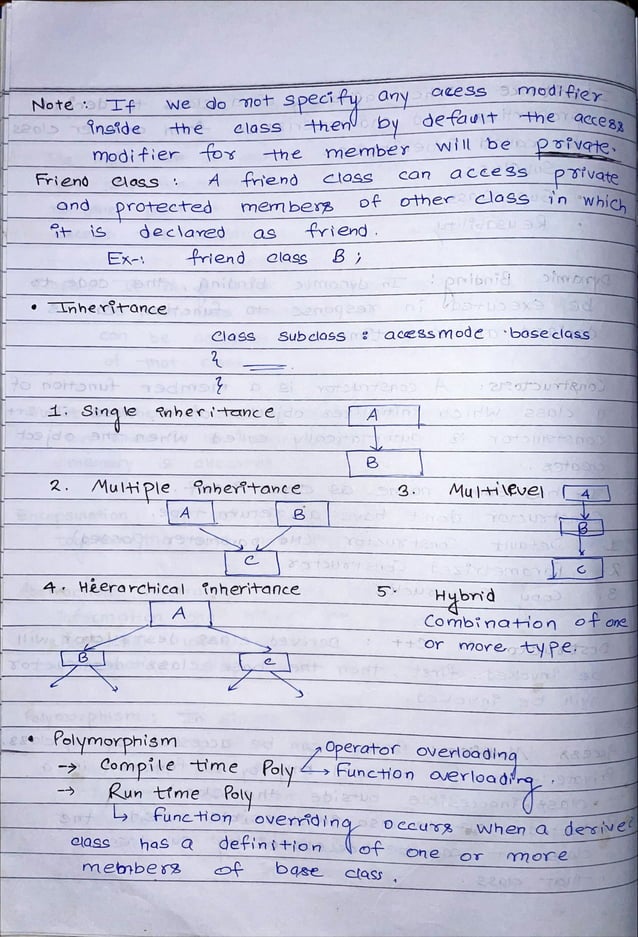 Note : If we do not specify any acess modifier
inside the class then by default the access
modifier for the member will be private.
Friend class : A friend class can access private
and protected members of other class in which
it is declared as friend.
Ex-: friend class B ;
• Inheritance
class subclass : accessmode baseclass
{
}
1. Single inheritance
A
B
2. Multiple inheritance
A B
C
3. Multilevel
A
B
C
4. Hierarchical inheritance
A
B C
5. Hybrid
Combination of one
or more type.
• Polymorphism
→ Compile time Poly
Operator overloading
→ Function overloading.
→ Run time Poly
↳ Function overriding occurs when a derive
class has a definition of one or more
members of base class.